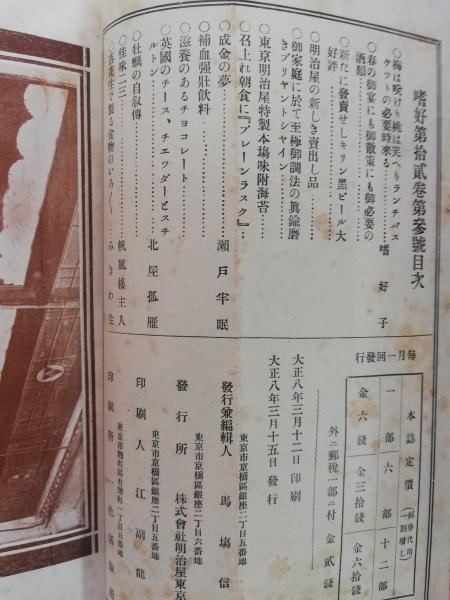 嗜好第拾貳卷第參號目次
○梅は咲けり桃は笑へりランチバスケツトの必要時來る……嗜好子
○春の御宴にも御散策にも御必要の酒類……
○新たに發賣せしキリン黑ビール大好評……
○明治屋の新しき賣出し品……
○御家庭に於て至極御調法の眞鍮磨きブリヤントシヤイン……
○東京明治屋特製本場味附海苔……
○召上れ朝食に『プレーンラスク』……
○成金の夢……瀨戸半眠
○補血强壯飮料……
○滋養のあるチョコレート……
○英國のチース、チエッダーとスチルトン……北屋孤雁
○牡蠣の自叙傳……
○佳味二三……帆風樓主人
みきわ生
每月一回發行
本誌定價(郵券代用一割增し)
一部 金六錢
六部 金三拾錢
十二部 金六拾錢
外ニ郵稅一部ニ付 金貳錢
大正八年三月十二日 印刷
大正八年三月十五日 發行
東京市京橋區銀座二丁目五番地
發行兼編輯人 馬場信
東京市京橋區銀座二丁目六番地
發行所 株式會社明治屋東京
東京市京橋區銀座二丁目五番地
印刷人 江副龍
東京市麴町區有樂町一丁目五番地
印刷所 一色活版所